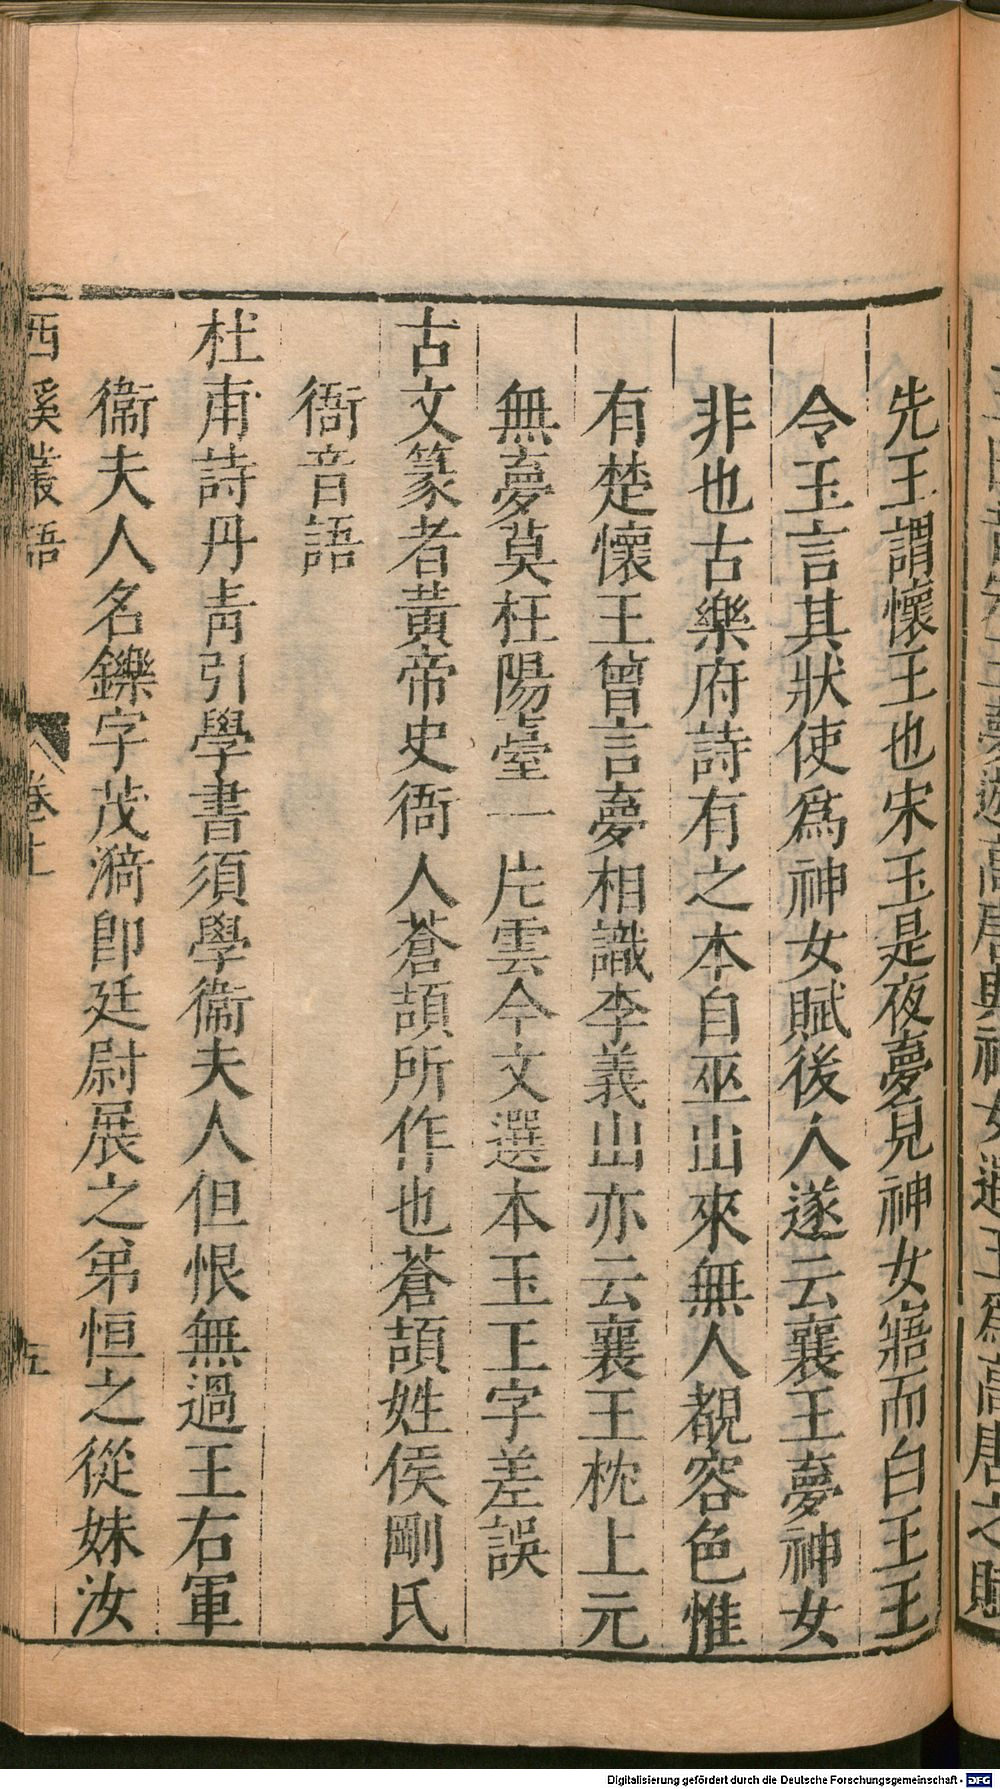 先王謂懷王也宋玉是夜夢見神女寤而白王王
令玉言其狀使爲神女賦後人遂云襄王夢神女
非也古樂府詩有之本自巫山來無人覩容色惟
有楚懷王曾言夢相識李義山亦云襄王枕上元
無夢莫枉陽臺一片雲今文選本玉王字差誤
古文篆者黃帝史衙人蒼頡所作也蒼頡姓侯剛氏
衙音語
杜甫詩丹靑引學書須學衞夫人但恨無過王右軍
衞夫人名鑠字茂漪卽廷尉展之弟恒之從妹汝
西溪叢語 卷上 五
Digitalisierung gefördert durch die Deutsche Forschungsgemeinschaft - DFG